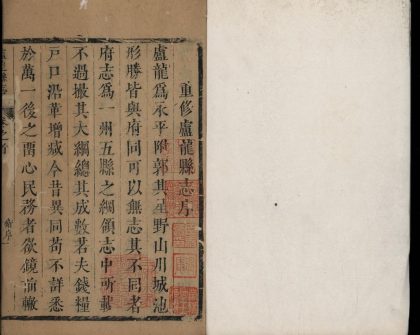 重修盧龍縣志序
盧龍爲永平附郭其星野山川城池
形勝皆與府同可以無志其不同者
府志爲一州五縣之綱領志中所載
不過撮其大綱總其成數若夫錢糧
戸口沿革增減今昔異同苟不詳悉
於萬一後之留心民務者欲鏡前轍